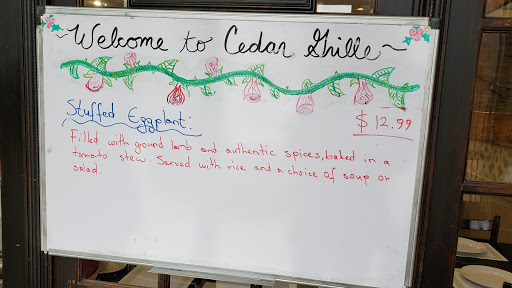 ~Welcome to Cedar Grille~
Stuffed Eggplant:
$ 12.99
Filled with gound lamb and authentic spices, baked in a
tomato stew. Served with rice and a choice of soup or
salad.